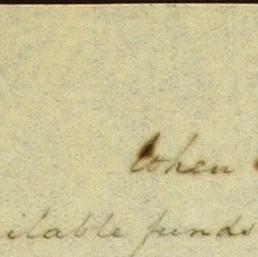 Cohen
ilable funds